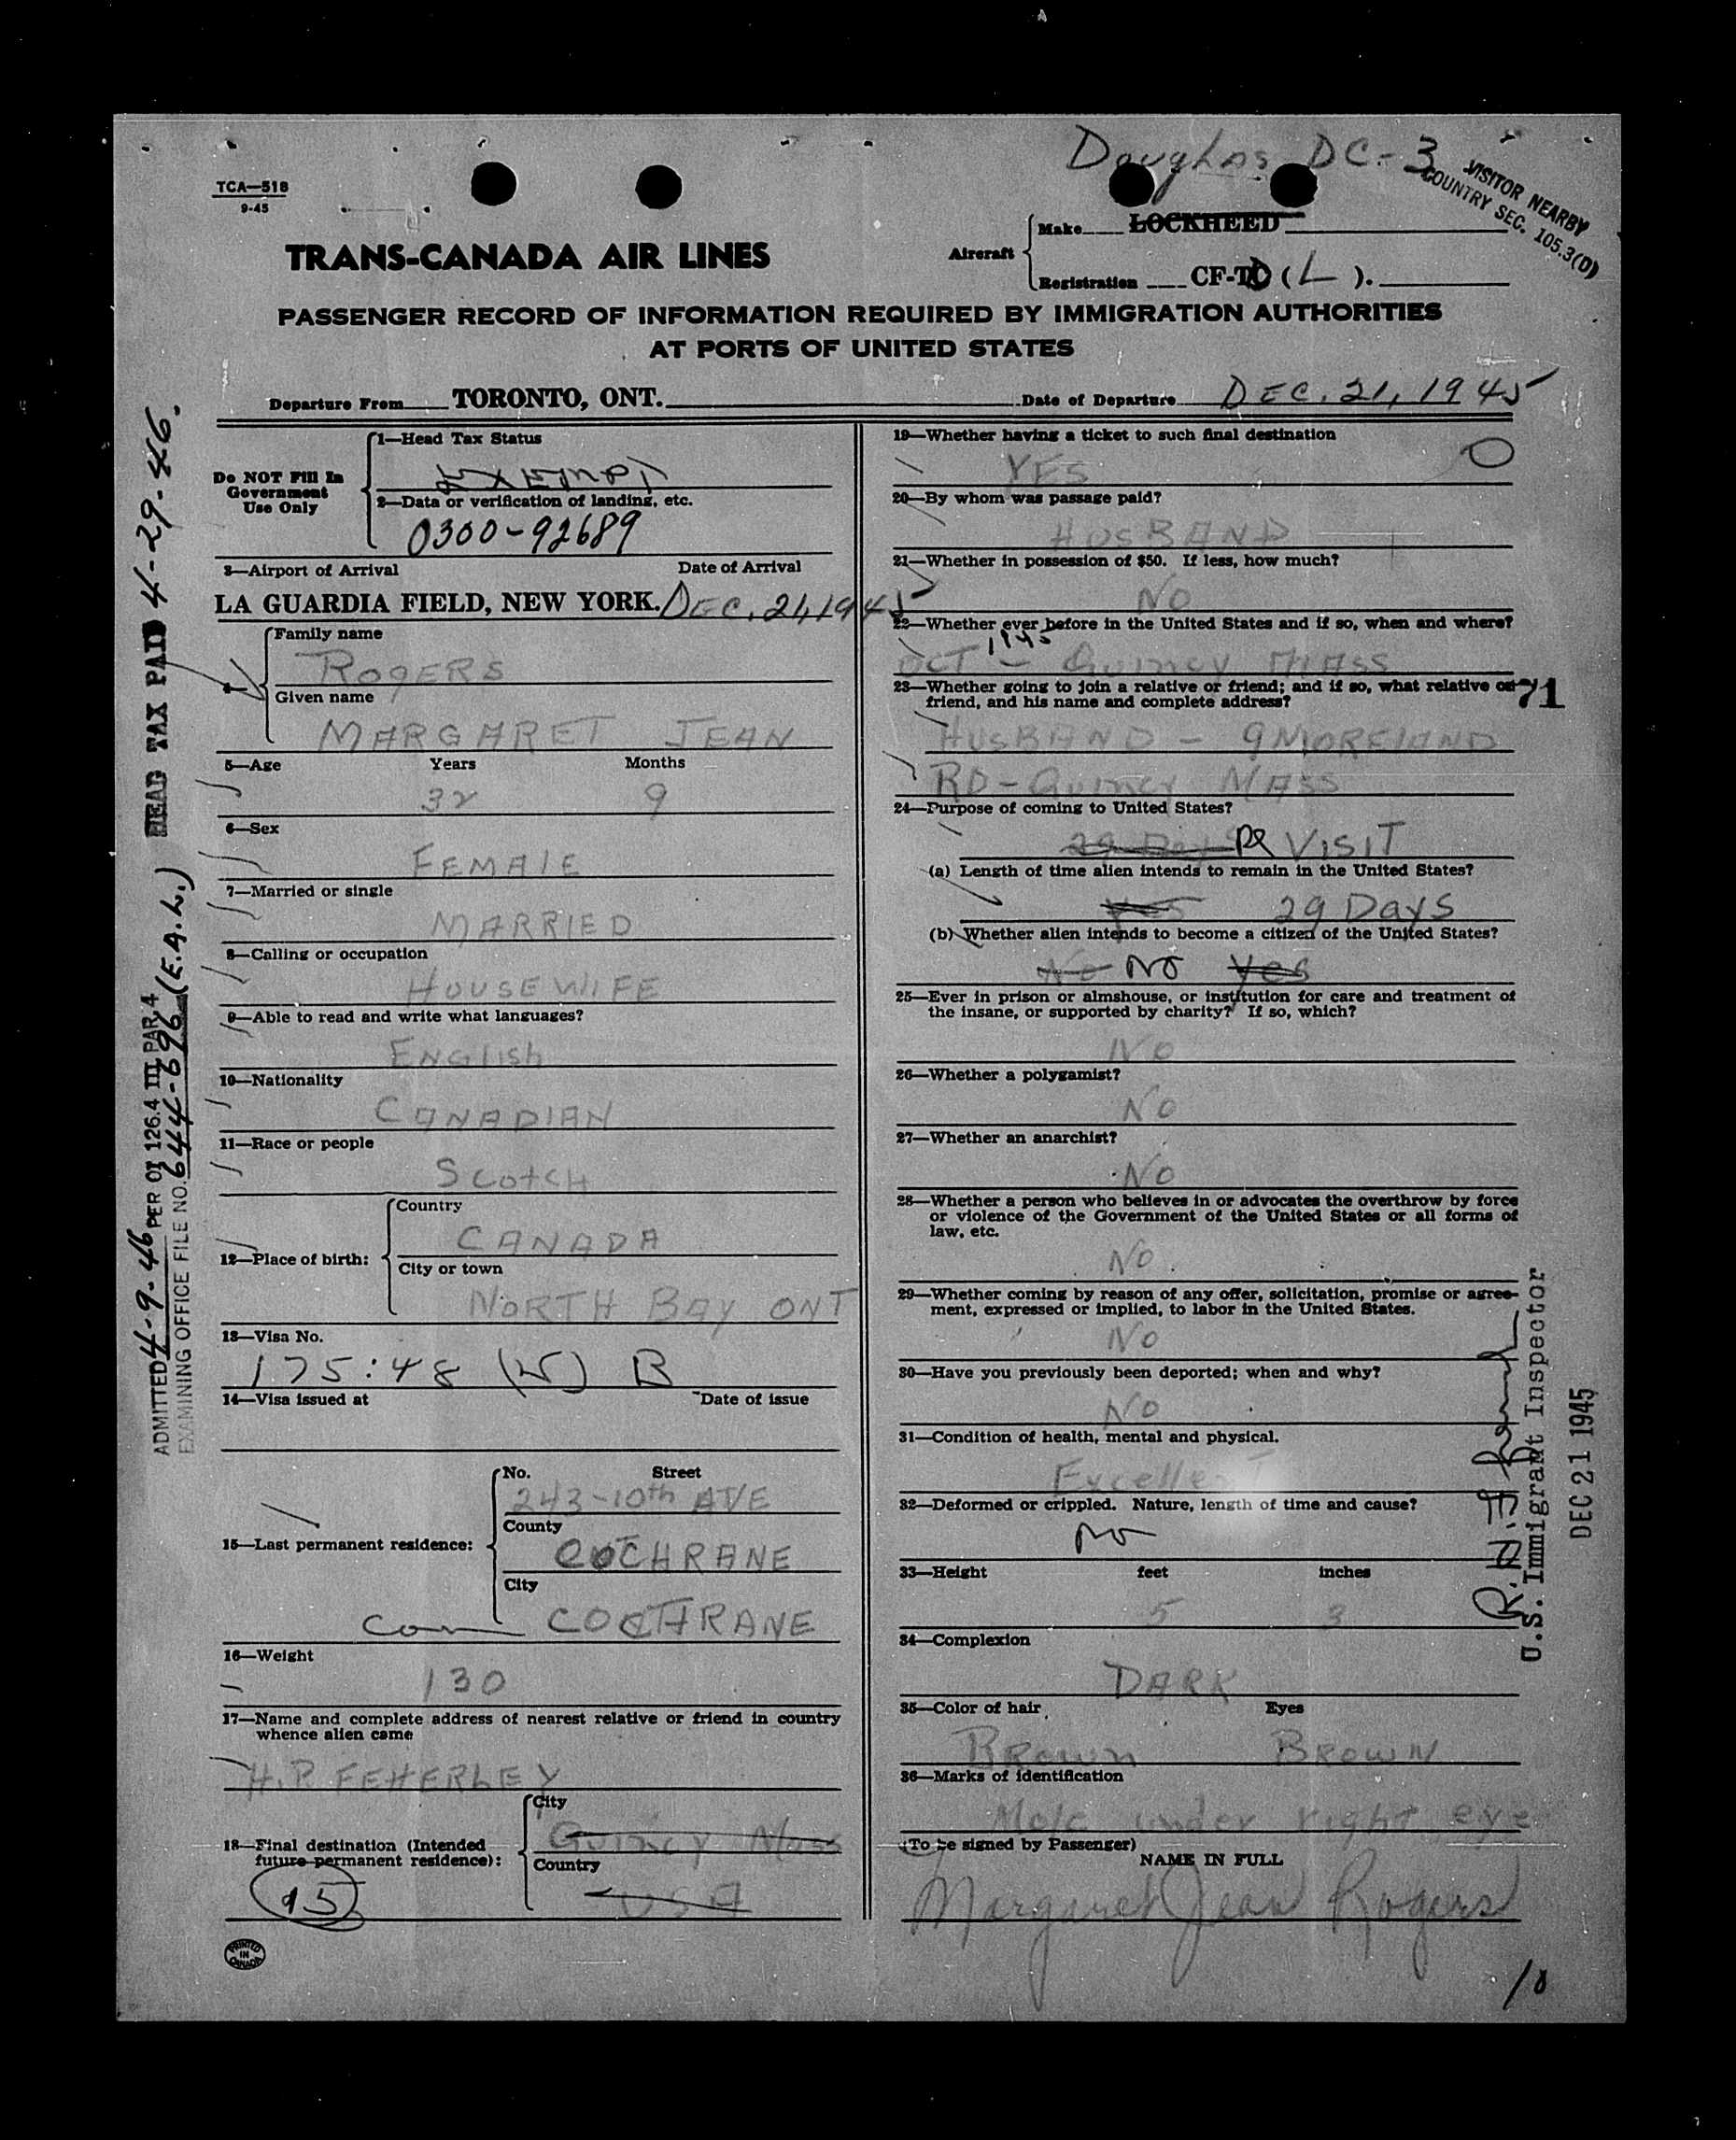 Douglas DC-3
VISITOR NEARBY
COUNTRY SEC. 105.3(D)
TCA—518
9-45
TRANS-CANADA AIR LINES
Aircraft
Make LOCKHEED
Registration CF-TD (L).
PASSENGER RECORD OF INFORMATION REQUIRED BY IMMIGRATION AUTHORITIES
AT PORTS OF UNITED STATES
Departure From TORONTO, ONT. Date of Departure DEC. 21, 1945
Do NOT Fill In
Government
Use Only
1—Head Tax Status
EXEMPT
2—Data or verification of landing, etc.
0300-92689
3—Airport of Arrival Date of Arrival
LA GUARDIA FIELD, NEW YORK. DEC. 21, 1945
Family name
ROGERS
Given name
MARGARET JEAN
5—Age Years Months
32 9
6—Sex
FEMALE
7—Married or single
MARRIED
8—Calling or occupation
HOUSEWIFE
9—Able to read and write what languages?
ENGLISH
10—Nationality
CANADIAN
11—Race or people
SCOTCH
12—Place of birth:
Country
CANADA
City or town
NORTH BAY ONT
13—Visa No.
175:48 (W) B
14—Visa issued at Date of issue
15—Last permanent residence:
No. Street
243-10th AVE
County
COCHRANE
City
COCHRANE
16—Weight
130
17—Name and complete address of nearest relative or friend in country
whence alien came
H.P. FEHERLEY
18—Final destination (Intended
future permanent residence):
City
Quincy Mass
Country
USA
15
PRINTED
IN
CANADA
19—Whether having a ticket to such final destination
YES
20—By whom was passage paid?
HUSBAND
21—Whether in possession of $50. If less, how much?
NO
22—Whether ever before in the United States and if so, when and where?
OCT 1945 - Quincy MASS
23—Whether going to join a relative or friend; and if so, what relative or
friend, and his name and complete address?
71
HUSBAND - 9 MORELAND
RD - Quincy MASS
24—Purpose of coming to United States?
29 Days VISIT
(a) Length of time alien intends to remain in the United States?
Yes 29 Days
(b) Whether alien intends to become a citizen of the United States?
No NO Yes
25—Ever in prison or almshouse, or institution for care and treatment of
the insane, or supported by charity? If so, which?
NO
26—Whether a polygamist?
NO
27—Whether an anarchist?
NO
28—Whether a person who believes in or advocates the overthrow by force
or violence of the Government of the United States or all forms of
law, etc.
NO
29—Whether coming by reason of any offer, solicitation, promise or agree-
ment, expressed or implied, to labor in the United States.
NO
30—Have you previously been deported; when and why?
NO
31—Condition of health, mental and physical.
Excellent
32—Deformed or crippled. Nature, length of time and cause?
No
33—Height feet inches
5 3
34—Complexion
DARK
35—Color of hair Eyes
BROWN BROWN
36—Marks of identification
Mole under right eye
(To be signed by Passenger)
NAME IN FULL
Margaret Jean Rogers
10
HEAD TAX PAID 4-29-46.
ADMITTED 4-9-46 PER OI 126.4 III PAR 4
EXAMINING OFFICE FILE NO. 644-696 (E.A.L.)
U.S. Immigrant Inspector
DEC 21 1945